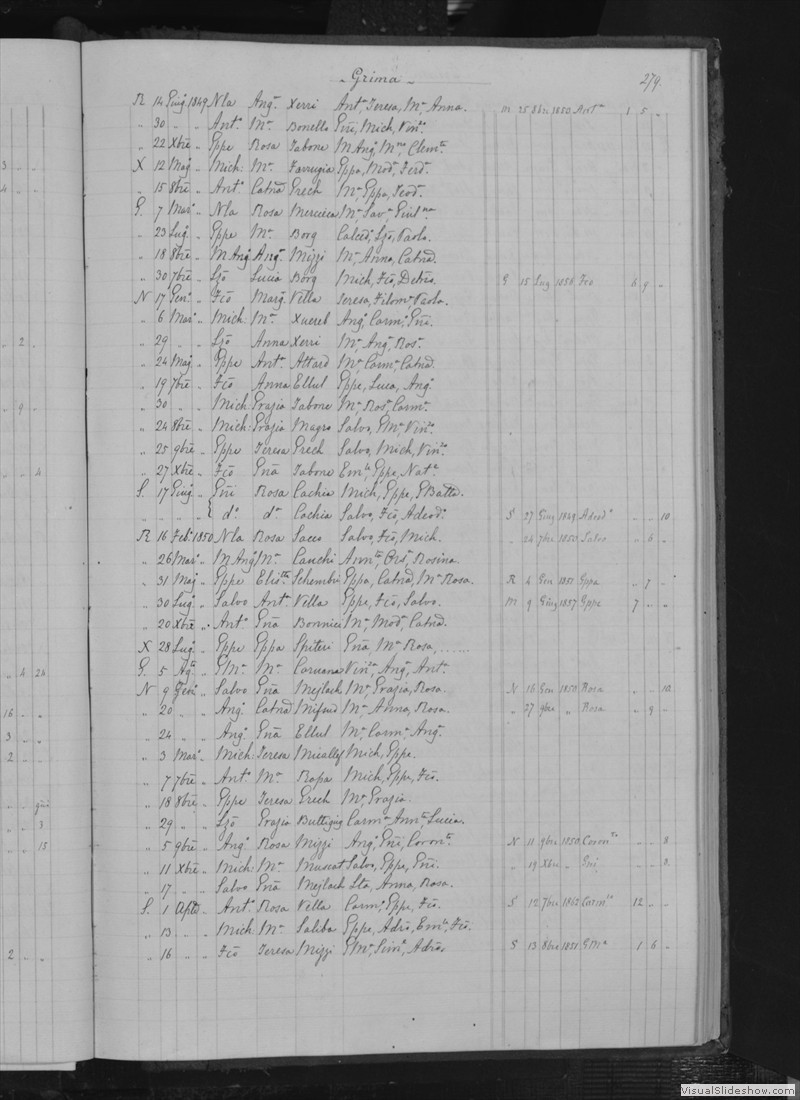 Grima
279.
R 14 Giug.º 1849 Nla Ang.ª Xerri Ant.ª, Teresa, M.ª, Anna. M 25 8bre 1850 Ant.ª 1 5 "
" 30 " " Ant.º M.ª Bonello Gni, Mich, Vin.ª
" 22 Xbre " Gppe Rosa Tabone M Ang.º, M.na, Clem.ª
X 12 Mag. " Mich: M.ª Farrugia Gppa, Mod.ª, Ferd.º
" 15 8bre " Ant.º Catna Grech M.ª, Gppa, Teod.ª
G. 7 Mar.º " Nla Rosa Mercieca M.ª Sav.ª
" 23 Lug.º " Gppe M.ª Borg Calced.ª, Lzo, Paolo.
" 18 8bre " M Ang.º Ang.ª Mizzi M.ª, Anna, Catna.
" 30 7bre " Lzo Lucia Borg Mich, Fco, G 15 Lug 1856 Fco 6 9 "
N 17 Gen.º " Fco Marg.ª Vella Teresa, Filom.ª, Paola.
" 6 Mar.º " Mich: M.ª Xuereb Ang.º, Carm.º, Gni.
" 29 " " Lzo Anna Xerri M.ª, Ang.ª, Ros.ª
" 24 Mag. " Gppe Ant.ª Attard M.ª, Carm.ª, Catna.
" 19 7bre " Fco Anna Ellul Gppe, Luca, Ang.º
" 30 " " Mich: Grazia Tabone M.ª, Ros.ª, Carm.ª
" 24 8bre " Mich: Grazia Magro Salvo, GM.ª, Vin.º
" 25 9bre " Gppe Teresa Grech Salvo, Mich, Vin.º
" 27 Xbre " Fco Gna Tabone Em.le, Gppe, Nat.e
S. 17 Giug.º " Gni Rosa Cachia Mich, Gppe, GBatta.
" " " " dº dª Cachia Salvo, Fco, Adeod.º S 27 Giug 1849 Adeod.º " " 10
R 16 Feb.º 1850 Nla Rosa Sacco Salvo, Fco, Mich. " 24 7bre 1850 Salvo " 6 "
" 26 Mar.º " M Ang.º M.ª Cauchi Ann.ta, Ors.ª, Rosina.
" 31 Mag. " Gppe Elis.tta Schembri Gppa, Catna, M.ª Rosa. R 4 Gen 1851 Gppa " 7 "
" 30 Lug.º " Salvo Ant.ª Vella Gppe, Fco, Salvo. M 9 Giug 1857 Gppe 7 " "
" 20 Xbre " Ant.º Gna Bonnici M.ª Mod.ª, Catna.
X 28 Lug.º " Gppe Gppa Spiteri Gna M.ª Rosa, ......
G. 5 Ag.to " GM.ª M.ª Caruana Vin.ª, Ang.ª, Ant.ª
N 9 Gen.º " Salvo Gna Mejlach M.ª, Grazia, Rosa. N 16 Gen 1850 Rosa " " 10
" 20 " " Ang.º Catna Mifsud M.ª, Anna, Rosa. " 27 9bre " Rosa " 9 "
" 24 " " Ang.º Gna Ellul M.ª, Carm.ª, Ang.ª
" 3 Mar.º " Mich: Teresa Micallef Mich, Gppe.
" 7 7bre " Ant.º M.ª Rapa Mich, Gppe, Fco.
" 18 8bre " Gppe Teresa Grech M.ª, Grazia.
" 29 " " Lzo Grazia Buttigieg Carm.ª, Ann.ta, Lucia.
" 5 9bre " Ang.º Rosa Mizzi Ang.º, Gni, Coron.ta N 11 9bre 1850 Coron.ta " " 8
" 11 Xbre " Mich: M.ª Muscat Salvo, Gppe, Gni. " 19 Xbre " Gni " " 8
" 17 " " Salvo Gna Mejlach Lta, Anna, Rosa.
S. 1 Aple " Ant.º Rosa Vella Carm.º, Gppe, Fco. S 12 7bre 1862 Carm.º 12 " "
" 13 " " Mich: M.ª Saliba Gppe, Adrō, Em.le, Fco.
" 16 " " Fco Teresa Mizzi GM.ª, Sim.e, Adrō. S 13 8bre 1851 GM.ª 1 6 "
VisualSlideshow.com